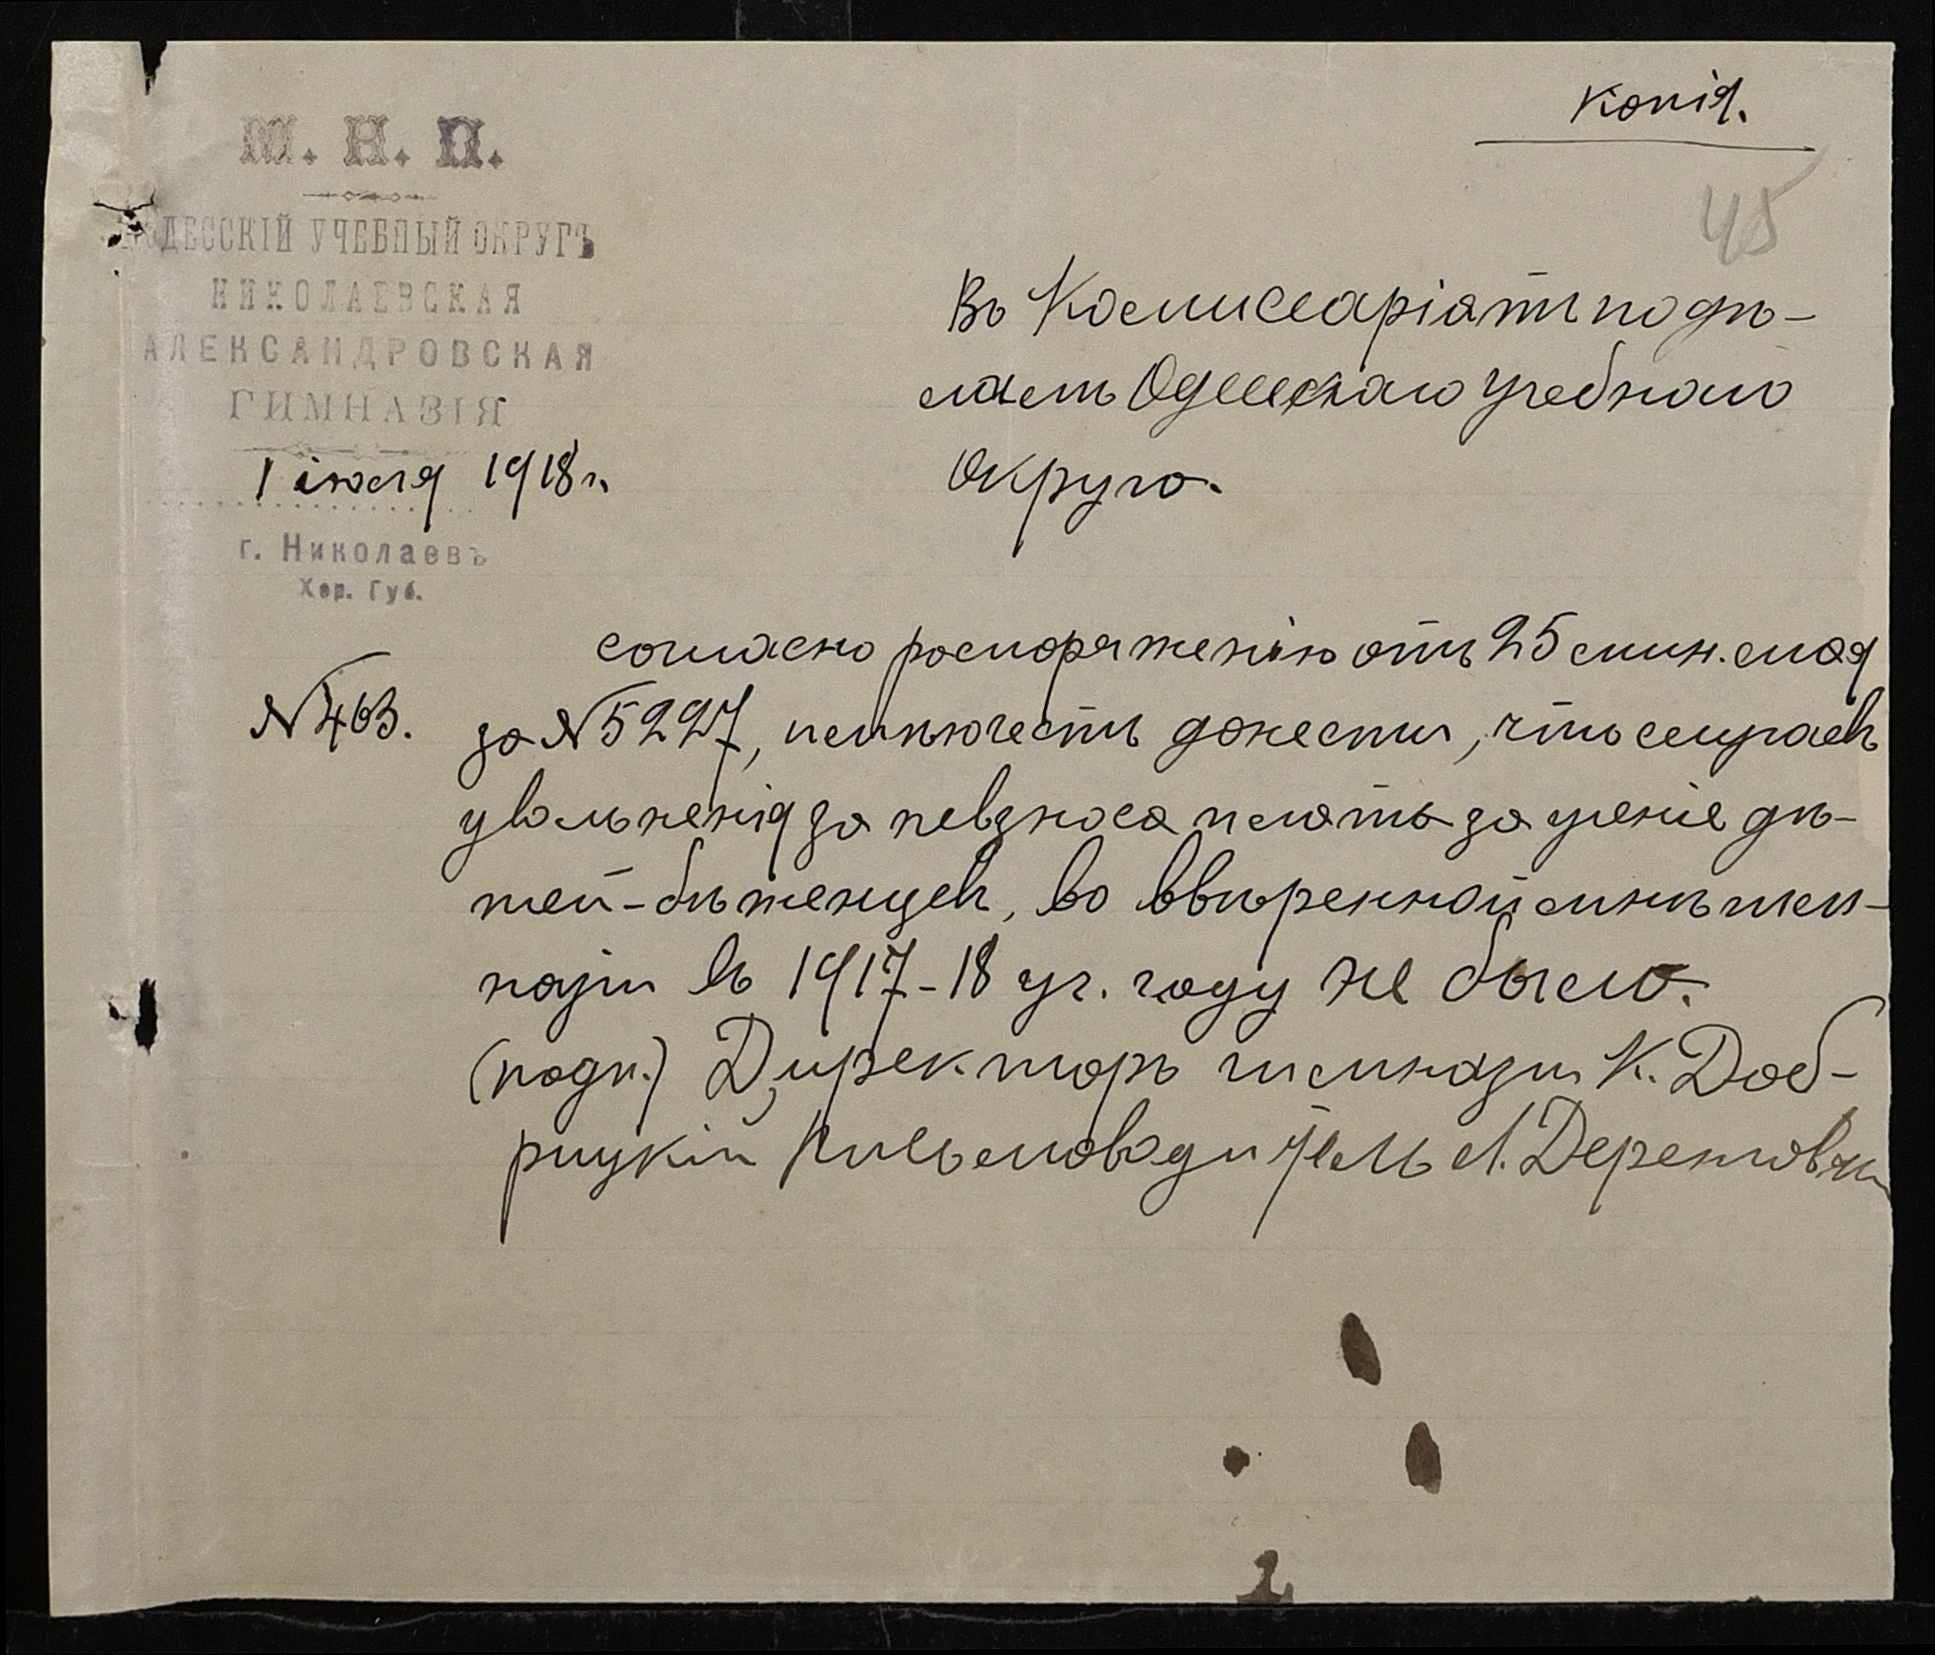 Копія.
45
М. Н. П.
ОДЕССКІЙ УЧЕБНЫЙ ОКРУГЪ
НИКОЛАЕВСКАЯ
АЛЕКСАНДРОВСКАЯ
ГИМНАЗІЯ
1 іюля 1918 г.
г. Николаевъ
Хер. Губ.
№ 463.
Въ Коммиссаріатъ по дѣ-
ламъ Одесскаго Учебнаго
Округа.
Согласно распоряженію отъ 25 мин. мая
за № 5227, имѣю честь донести, что случаевъ
увольненія за невзноса платы за ученіе дѣ-
тей-бѣженцевъ, во ввѣренной мнѣ гим-
назіи въ 1917-18 уч. году не было.
(подп.) Директоръ гимназіи К. Доб-
рицкій Письмоводитель